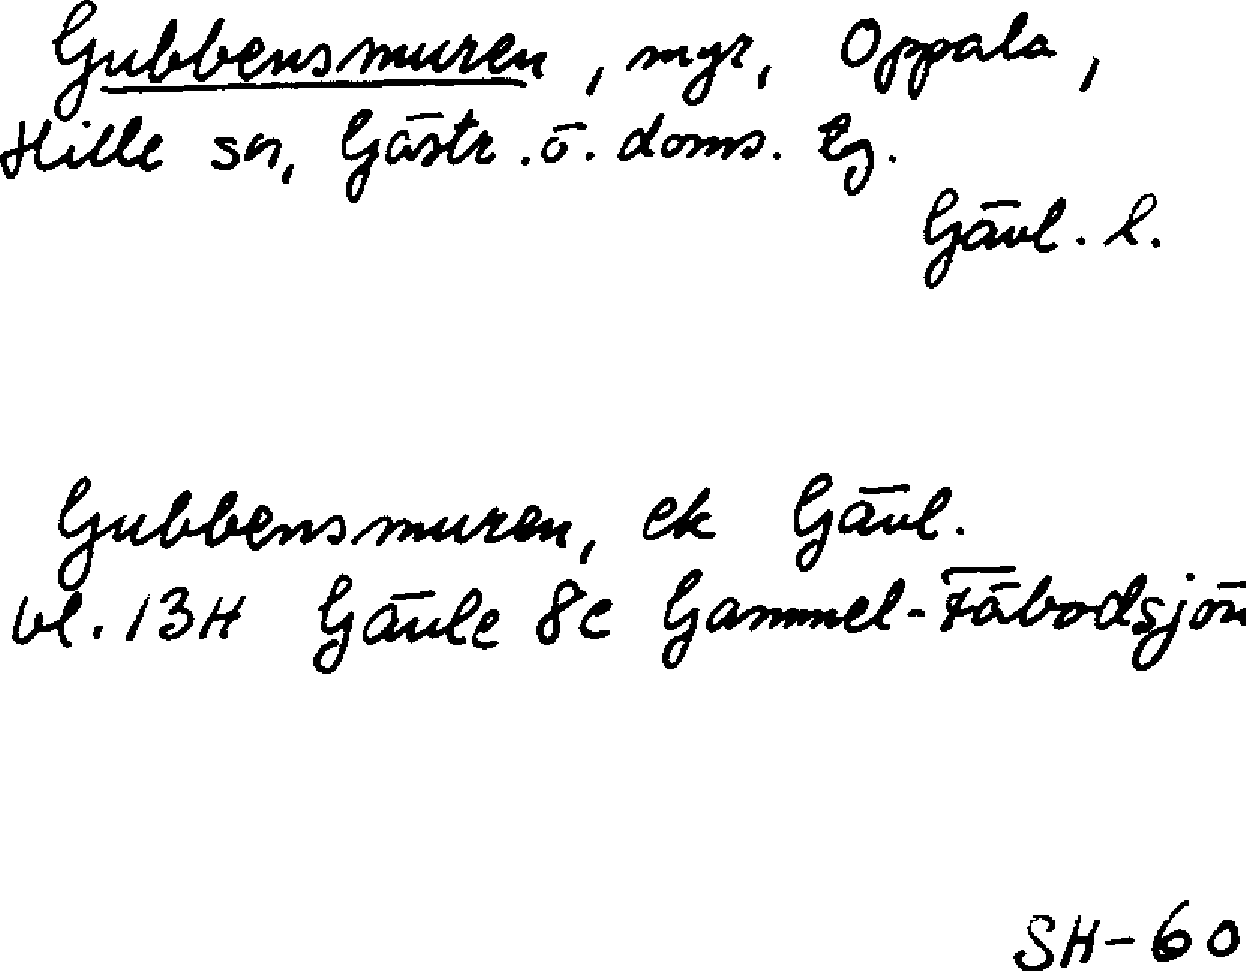 Gubbensmuren, myr, Oppala,
Hille sn, Gästr. ö. doms. tg.
Gävl. l.
Gubbensmuren, ek Gävl.
bl. 13H Gävle 8c Gammel-Fäbodsjön
SH-60